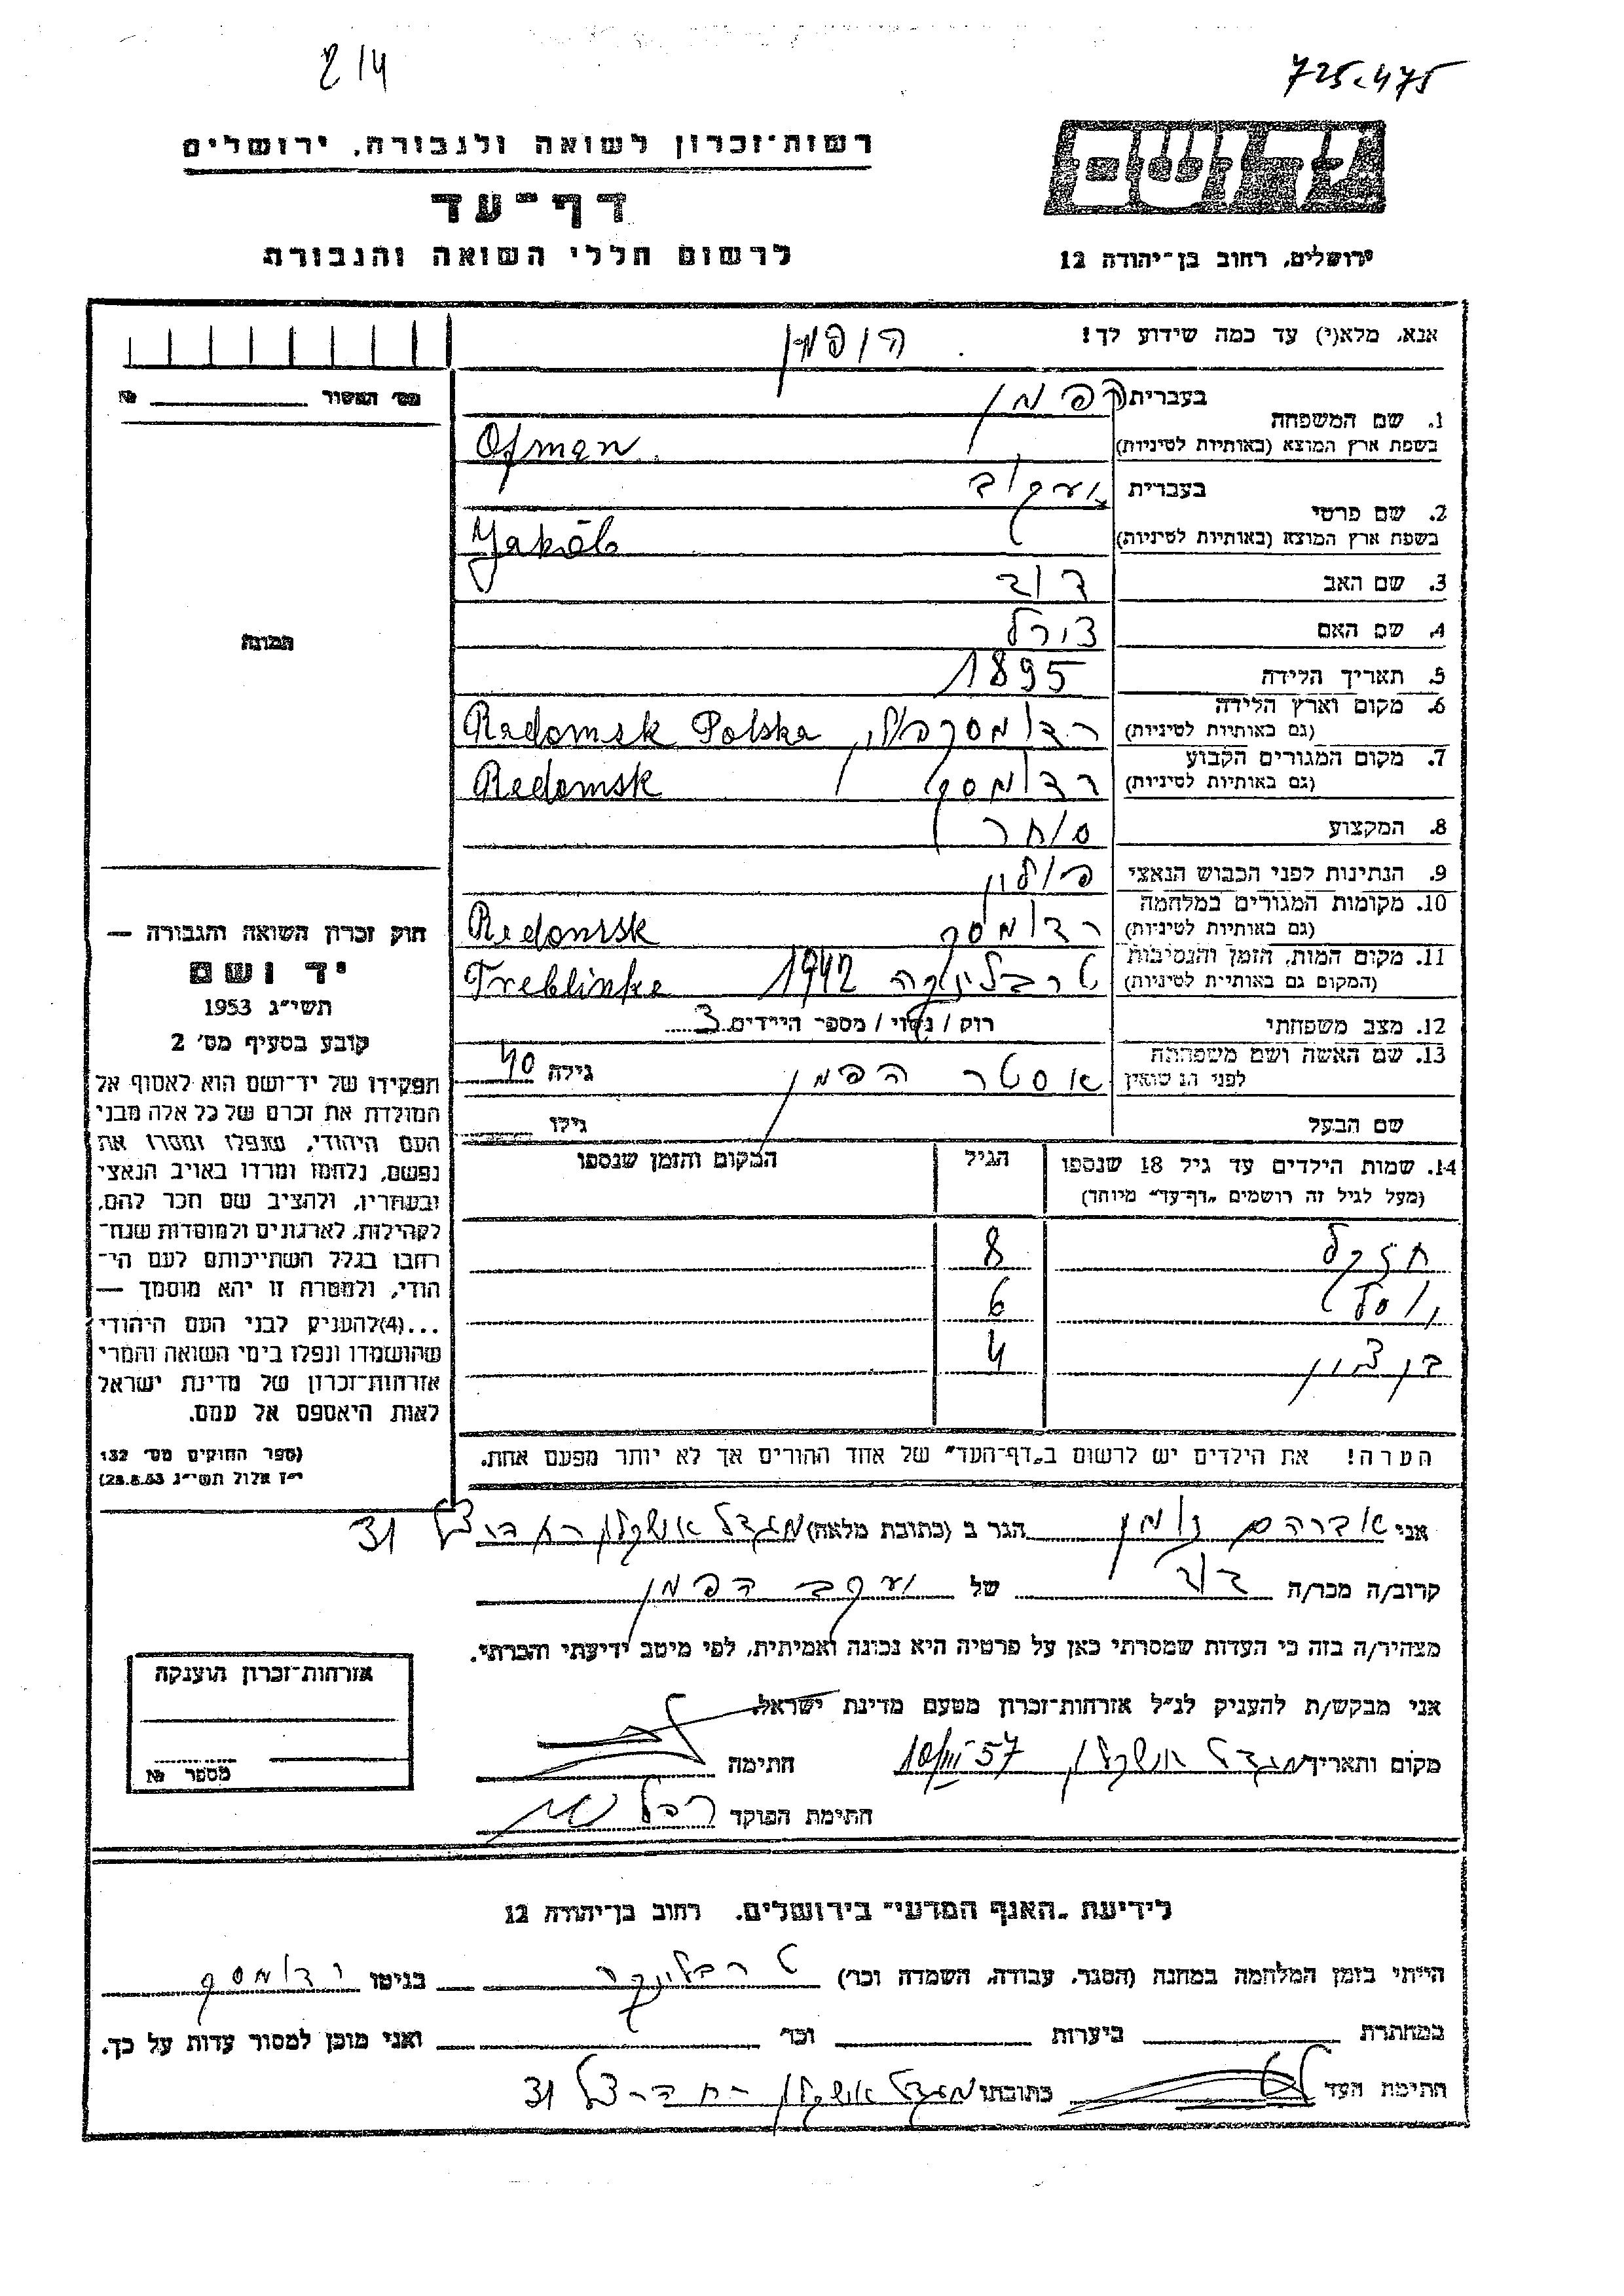 214
725.475
רשות-זכרון לשואה ולגבורה, ירושלים
דף-עד
לרשום חללי השואה והגבורה
ירושלים, רחוב בן-יהודה 12
אנא, מלא(י) עד כמה שידוע לך!
הופמן
מס' האשור №
1. שם המשפחה
בעברית הפמן
בשפת ארץ המוצא (באותיות לטיניות) Ofman
2. שם פרטי
בעברית יעקוב
בשפת ארץ המוצא (באותיות לטיניות) Jakób
3. שם האב דוד
4. שם האם צירל
5. תאריך הלידה 1895
6. מקום וארץ הלידה (גם באותיות לטיניות) רדומסק פולין Radomsk Polska
7. מקום המגורים הקבוע (גם באותיות לטיניות) רדומסק Radomsk
8. המקצוע סוחר
9. הנתינות לפני הכבוש הנאצי פולין
10. מקומות המגורים במלחמה (גם באותיות לטיניות) רדומסק Radomsk
11. מקום המות, הזמן והנסיבות (המקום גם באותיות לטיניות) טרבלינקה 1942 Treblinka
12. מצב משפחתי רוק / נשוי / מספר הילדים 3
13. שם האשה ושם משפחתה לפני הנשואין אסטר הפמן גילה 40
שם הבעל גילו
14. שמות הילדים עד גיל 18 שנספו הגיל המקום והזמן שנספו
(מעל לגיל זה רושמים "דף-עד" מיוחד)
חזקל 8
יוסף 6
בן ציון 4
הערה! את הילדים יש לרשום ב"דף-העד" של אחד ההורים אך לא יותר מפעם אחת.
תמונה
חוק זכרון השואה והגבורה —
יד ושם
תשי"ג 1953
קובע בסעיף מס' 2
תפקידו של יד-ושם הוא לאסוף אל
המולדת את זכרם של כל אלה מבני
העם היהודי, שנפלו ומסרו את
נפשם, נלחמו ומרדו באויב הנאצי
ובעוזריו, ולהציב שם וזכר להם,
לקהילות, לארגונים ולמוסדות שנח-
רבו בגלל השתייכותם לעם הי-
הודי, ולמטרה זו יהא מוסמך —
...(4)להעניק לבני העם היהודי
שהושמדו ונפלו בימי השואה והמרי
אזרחות-זכרון של מדינת ישראל
לאות היאספם אל עמם.
(ספר החוקים מס' 132
י"ז אלול תשי"ג 28.8.53)
אני אברהם הגר ב (כתובת מלאה) מגדל אשקלון רח הרצל 31
קרוב/ה מכר/ה דוד של יעקב הפמן
מצהיר/ה בזה כי העדות שמסרתי כאן על פרטיה היא נכונה ואמיתית, לפי מיטב ידיעתי והכרתי.
אני מבקש/ת להעניק לנ"ל אזרחות-זכרון מטעם מדינת ישראל.
מקום ותאריך מגדל אשקלון 10/III 57 חתימה
חתימת הפוקד
אזרחות-זכרון הוענקה
מספר №
לידיעת "האגף המדעי" בירושלים. רחוב בן-יהודה 12
הייתי בזמן המלחמה במחנה (הסגר, עבודה, השמדה וכו') טרבלינקה בגיטו רדומסק
במחתרת ביערות וכו' ואני מוכן למסור עדות על כך.
חתימת העד כתובתו מגדל אשקלון רח הרצל 31